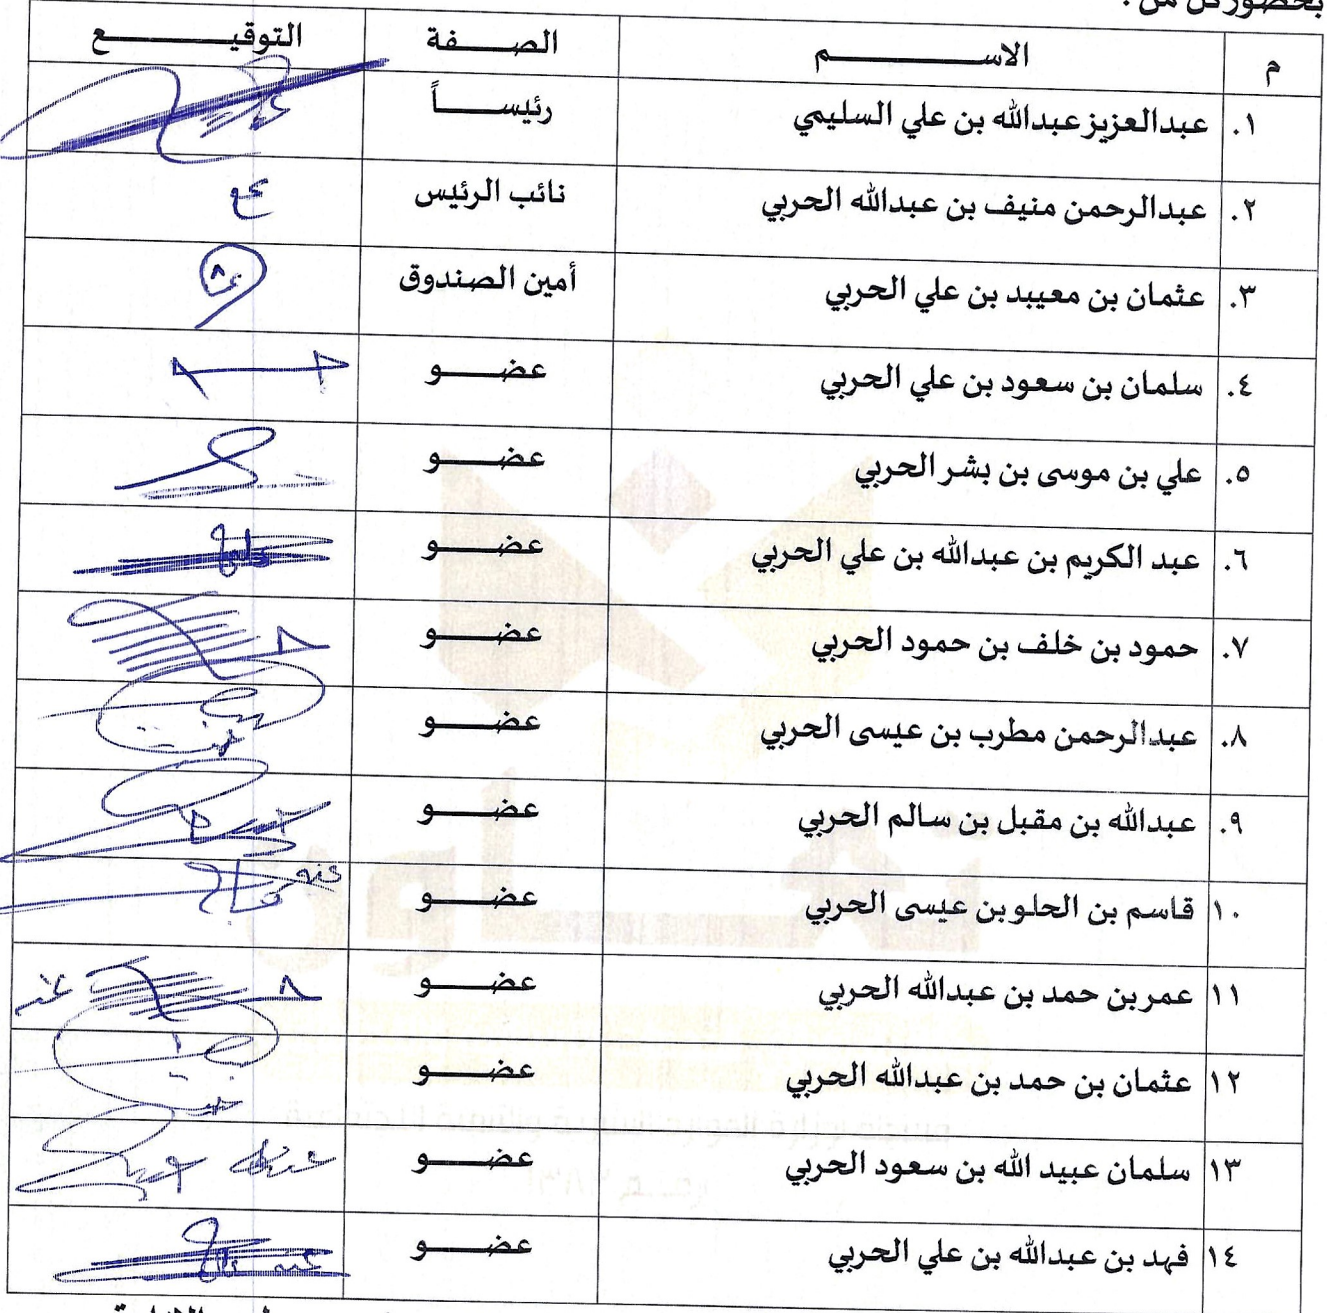 بحضور كل من :
م الاســـــــــــم الصـــــفة التوقيـــــــــــع
١. عبدالعزيز عبدالله بن علي السليمي رئيســـــاً
٢. عبدالرحمن منيف بن عبدالله الحربي نائب الرئيس
٣. عثمان بن معيبد بن علي الحربي أمين الصندوق
٤. سلمان بن سعود بن علي الحربي عضـــــــو
٥. علي بن موسى بن بشر الحربي عضـــــــو
٦. عبد الكريم بن عبدالله بن علي الحربي عضـــــــو
٧. حمود بن خلف بن حمود الحربي عضـــــــو
٨. عبدالرحمن مطرب بن عيسى الحربي عضـــــــو
٩. عبدالله بن مقبل بن سالم الحربي عضـــــــو
١٠ قاسم بن الحلو بن عيسى الحربي عضـــــــو
١١ عمر بن حمد بن عبدالله الحربي عضـــــــو
١٢ عثمان بن حمد بن عبدالله الحربي عضـــــــو
١٣ سلمان عبيد الله بن سعود الحربي عضـــــــو
١٤ فهد بن عبدالله بن علي الحربي عضـــــــو